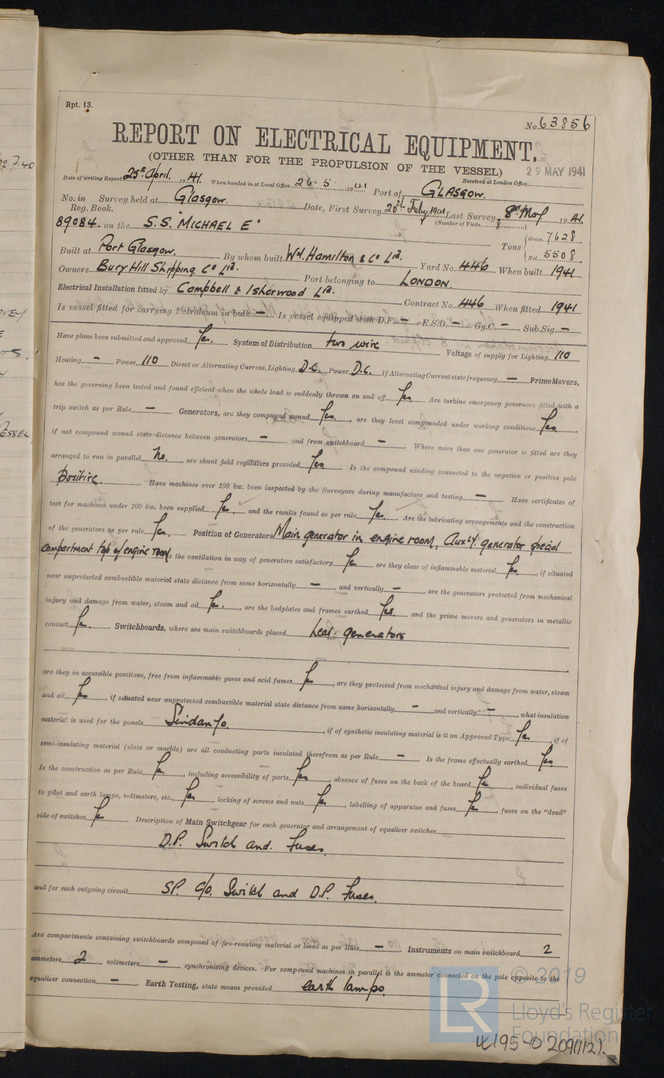 Rpt. 13.
No. 63856
REPORT ON ELECTRICAL EQUIPMENT.
(OTHER THAN FOR THE PROPULSION OF THE VESSEL)
29 MAY 1941
Date of writing Report 25th April. 1941. When handed in at Local Office 26.5 1941 Port of GLASGOW. Received at London Office
No. in Survey held at Glasgow. Date, First Survey 20th Feby 1941 Last Survey 8th May 1941.
Reg. Book. (Number of Visits )
89084 on the S.S. "MICHAEL E" Tons { Gross 7628
Net 5508
Built at Port Glasgow. By whom built Wm. Hamilton & Co Ltd. Yard No. 446 When built 1941
Owners Bury Hill Shipping Co Ltd. Port belonging to LONDON.
Electrical Installation fitted by Campbell & Isherwood Ltd. Contract No. 446 When fitted 1941
Is vessel fitted for carrying Petroleum in bulk — Is vessel equipped with D.F. — E.S.D. — Gy.C. — Sub.Sig. —
Have plans been submitted and approved Yes. System of Distribution two wire Voltage of supply for Lighting 110
Heating — Power 110 Direct or Alternating Current, Lighting D.C. Power D.C. If Alternating Current state frequency — Prime Movers,
has the governing been tested and found efficient when the whole load is suddenly thrown on and off Yes. Are turbine emergency governors fitted with a
trip switch as per Rule — Generators, are they compound wound Yes, are they level compounded under working conditions Yes,
if not compound wound state distance between generators — and from switchboard — Where more than one generator is fitted are they
arranged to run in parallel No, are shunt field regulators provided Yes Is the compound winding connected to the negative or positive pole
Positive. Have machines over 100 kw. been inspected by the Surveyors during manufacture and testing — Have certificates of
test for machines under 100 kw. been supplied Yes and the results found as per rule Yes. Are the lubricating arrangements and the construction
of the generators as per rule Yes. Position of Generators Main generator in engine room, Auxly generator special
compartment top of engine room, is the ventilation in way of generators satisfactory Yes are they clear of inflammable material Yes, if situated
near unprotected combustible material state distance from same horizontally — and vertically —, are the generators protected from mechanical
injury and damage from water, steam and oil Yes., are the bedplates and frames earthed Yes and the prime movers and generators in metallic
contact Yes. Switchboards, where are main switchboards placed near generators
are they in accessible positions, free from inflammable gases and acid fumes Yes, are they protected from mechanical injury and damage from water, steam
and oil Yes, if situated near unprotected combustible material state distance from same horizontally — and vertically —, what insulation
material is used for the panels Sindanyo., if of synthetic insulating material is it an Approved Type Yes, if of
semi-insulating material (slate or marble) are all conducting parts insulated therefrom as per Rule — Is the frame effectually earthed Yes.
Is the construction as per Rule Yes, including accessibility of parts Yes, absence of fuses on the back of the board Yes, individual fuses
to pilot and earth lamps, voltmeters, etc. Yes locking of screws and nuts Yes, labelling of apparatus and fuses Yes, fuses on the "dead"
side of switches Yes Description of Main Switchgear for each generator and arrangement of equaliser switches
D.P. Switch and Fuses.
and for each outgoing circuit SP. C/o. Switch and D.P. Fuses.
Are compartments containing switchboards composed of fire-resisting material or lined as per Rule — Instruments on main switchboard 2
ammeters 2 voltmeters — synchronising devices. For compound machines in parallel is the ammeter connected on the pole opposite to the
equaliser connection — Earth Testing, state means provided earth lamps.
© 2019
LR
Lloyd's Register
Foundation